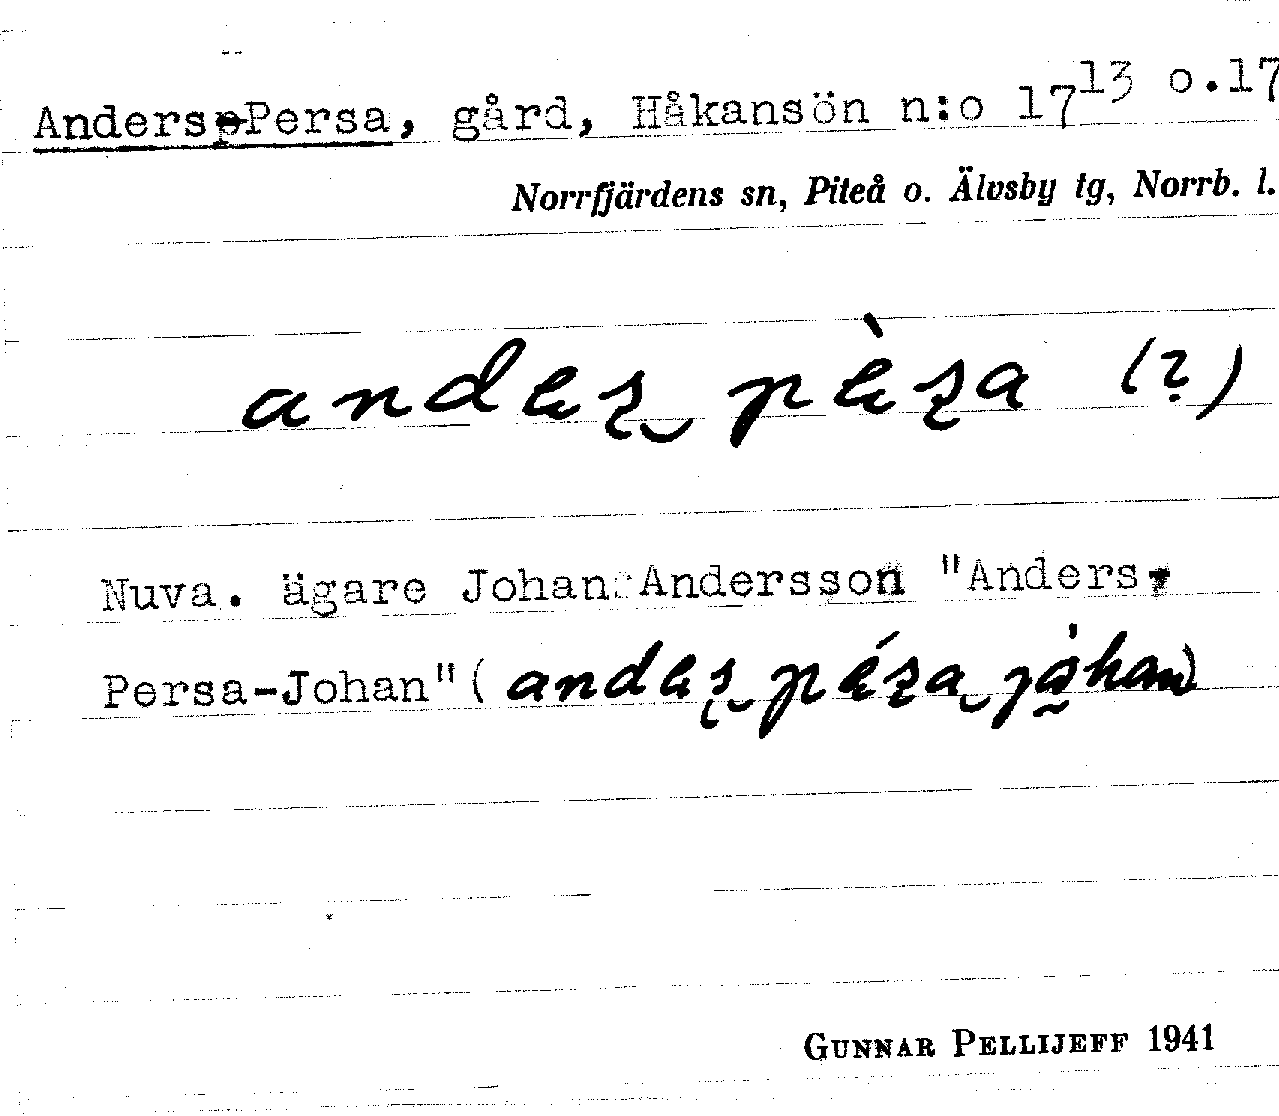 Anders-Persa, gård, Håkansön n:o 17¹³ o.17
Norrfjärdens sn, Piteå o. Älvsby tg, Norrb. l.
(?)
Nuva. ägare Johan Andersson "Anders-
Persa-Johan" (
GUNNAR PELLIJEFF 1941